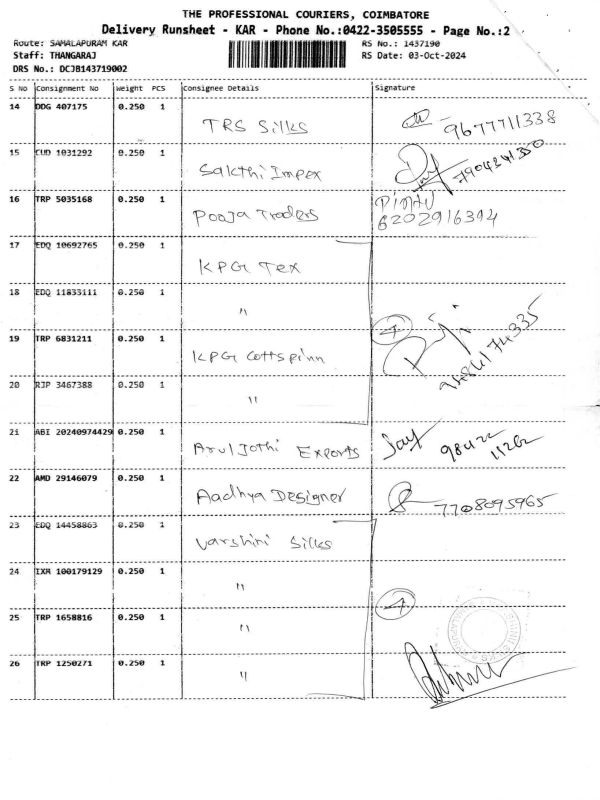 THE PROFESSIONAL COURIERS, COIMBATORE
Delivery Runsheet - KAR - Phone No.:0422-3505555 - Page No.:2
Route: SAMALAPURAM KAR
RS No.: 1437190
Staff: THANGARAJ
RS Date: 03-Oct-2024
DRS No.: DCJB143719002
S No Consignment No Weight PCS Consignee Details Signature
14 DDG 407175 0.250 1 TRS Silks 9677711338
15 CUD 1031292 0.250 1 Sakthi Impex 7904241350
16 TRP 5035168 0.250 1 Pooja Traders 6202916394
17 EDQ 10692765 0.250 1 KPG Tex
18 EDQ 11833111 0.250 1 "
19 TRP 6831211 0.250 1 KPG Cottspinn 4
20 RJP 3467388 0.250 1 "
21 ABI 20240974429 0.250 1 Arul Jothi Exports Jay 98422 11262
22 AMD 29146079 0.250 1 Aadhya Designer 7708095965
23 EDQ 14458863 0.250 1 Varshini Silks
24 IXR 100179129 0.250 1 "
25 TRP 1658816 0.250 1 " 4
26 TRP 1250271 0.250 1 "